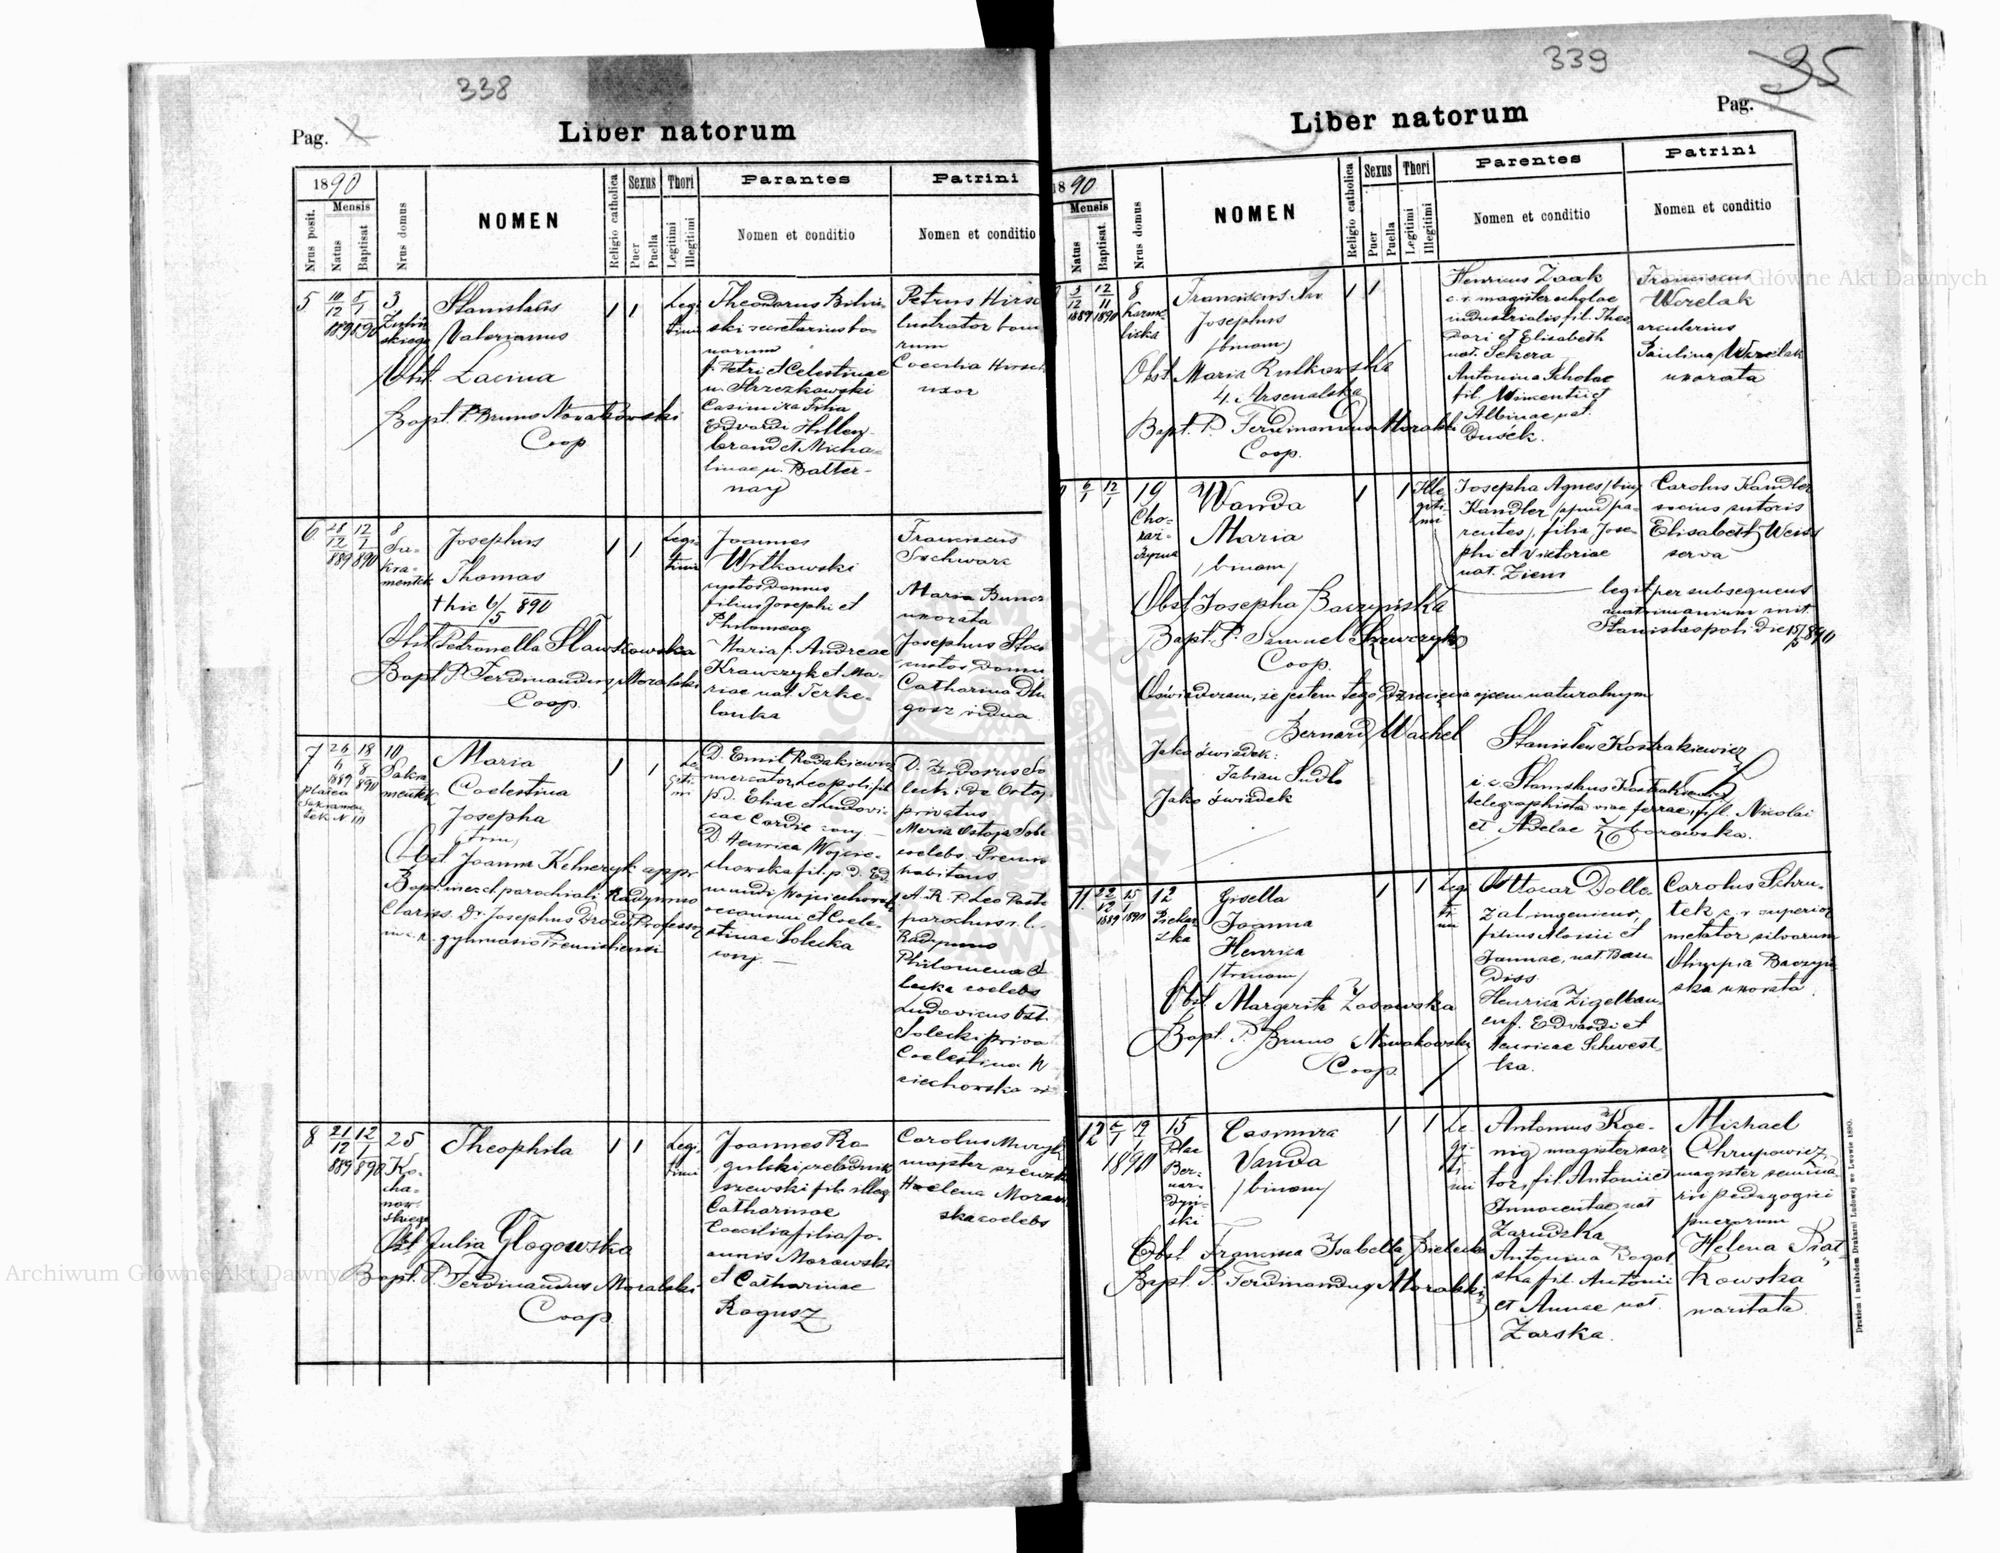 338
Pag.
Liber natorum
1890
Mensis
Nrus posit.
Natus
Baptisat
Nrus domus
NOMEN
Religio catholica
Sexus
Puer
Puella
Thori
Legitimi
Illegitimi
Parantes
Nomen et conditio
Patrini
Nomen et conditio
5
10/12 889
8/1 890
3
Stanislaus
Valerianus
Obst. Lacina
Bapt. P. Bruno Nowakowski
Coop
1 1
Legi
timi
Theodorus
ski secretarius bo-
norum
f. Petri et Celestinae
n. Strzezkowski
Casimira filia
Edvardi Hillen
brand et Micha-
linae n. Batter-
nay
Petrus Hirsc
lustrator bon
rum
Coecilia Hirsch
uxor
6
28/12 889
12/1 890
8
Sa-
kra-
mentek
Josephus
Thomas
† hic 6/5 890
Obst Petronella Sławkowska
Bapt P. Ferdinandus Moralski
Coop.
1 1
Legi-
timi
Joannes
Witkowski
custos domus
filius Josephi et
Philomeae
Maria f. Andreae
Krawczyk et Ma-
riae nat. Terke-
lonka
Franciscus
Sschwarc
Maria
uxorata
Josephus
custos domu
Catharina Dłu
gosz vidua
7
26/6 1889
18/8 890
platea
Sakramen
tek N 10
10
Sakra
mentek
Maria
Coelestina
Josepha
trin,
Obst Joanna Kelnerzyk appr
Bapt. in ecch parochiali Radymno
Clariss. Dr. Josephus Drozd, Professor
in c. r. gymnasio Premisliensi
1 1
Le
giti
mi
D. Emil Rodakiewicz
mercator, Leopoli, fil.
p. d. Eliae et Ludovi-
cae Cordie conj
D. Henrica Wojcie-
chowska fil. p. d. Ed
mundi Wojciechowski
oeconomi et Coele-
stinae Solecka
conj.
privatus
Maria Ostoja Sole
coelebs Premis
habitans
A. R. P. Leo Pasto
parochus r. l.
Radymno
Philomena S
lecka coelebs
Ludovicus Ost.
Solecki priva
Coelestina W
ciechowska vi
8
21/12 889
12/1 890
25
Ko-
cha-
now-
skiego
Theophila
Obst Julia Głogowska
Bapt. P. Ferdinandus Moralski
Coop.
1 1
Legi
timi
Joannes Ra-
gulski czeladnik
szewski fil. illeg
Catharinae
Coecilia filia Jo-
annis Morawski
et Catharinae
Rogusz
Carolus
majster szewski
Helena Moraw
ska coelebs
339
95
Pag.
Liber natorum
1890
Mensis
Natus
Baptisat.
Nrus domus
NOMEN
Religio catholica
Sexus
Puer
Puella
Thori
Legitimi
Illegitimi
Parentes
Nomen et conditio
Patrini
Nomen et conditio
8
Karme-
licka
Franciscus
Josephus
/binom/
Obst Maria Rutkowska
4. Arsenalska
Bapt. P. Ferdinandus Moralski
Coop.
1 1
Henricus Zaak
c. r. magister scholae
industrialis fil. Theo
dori et Elisabeth
nat. Sekera
Antonina Scholae
fil. Wincentii et
Albinae nat.
Dušek.
Franciscus
Worelak
arcularius
Paulina Worelak
uxorata
6/1
12/1
19
Cho-
raz-
czyzna
Wanda
Maria
/binom/
Obst Josepha Baczyńska
Bapt. P. Samuel Szewczyk
Coop.
1 1
Ille
giti-
mi
Josepha Agnes /bin/
Kandler /apud pa-
rentes/, filia Jose-
phi et Victoriae
nat. Ziem
Carolus Kandler
socius sutoris
Elisabeth Weiss
serva
legit per subsequens
matrimonium init.
Stanislaopoli die 15/5 890
Oświadczam, że jestem tego dziecięcia ojcem naturalnym
Bernard Wachel
Jako świadek:
Fabian Sudło
Jako świadek
Stanisław Kostrakiewicz
i. e. Stanislaus Kostrakiewicz
telegraphista viae ferrae, fil. Nicolai
et Adelae Zborowska.
11
22/12 1889
15/1 1890
12
Piekar
ska
Gisella
Joanna
Henrica
/trinom/
Obst. Margerita Zasowska
Bapt. P. Bruno Nowakowski
Coop.
1 1
Legi
ti
mi
Ottocar Dolle-
zal, ingenieur,
filius Aloisii et
Joannae, nat. Bau-
diss
Henrica Zigelbau-
er f. Edvardi et
Henricae Schwest-
ka.
Carolus Schru-
tek c. r. superior
metator silvarum
Olimpia Baczyń-
ska uxorata
12
19/1
1890
15
Plac
Ber-
nar-
dyń-
ski
Casimira
Vanda
/binom/
Obst Francisca Isabella Bielecka
Bapt. P. Ferdinandus Moralski
1 1
Le-
gi-
ti-
mi
Antonius Koe-
nig magister sar-
tor, fil. Antonii et
Innocentae nat
Zarudzka
Antonina Rogal
ska fil. Antonii
et Annae nat.
Zarska.
Michael
Chrupowicz
magister semina-
rii pedagogici
puerorum
Helena Piat-
kowska
maritata
Drukiem i nakładem Drukarni Ludowej we Lwowie 1890.
Archiwum Główne Akt Dawnych
Archiwum Główne Akt Dawnych